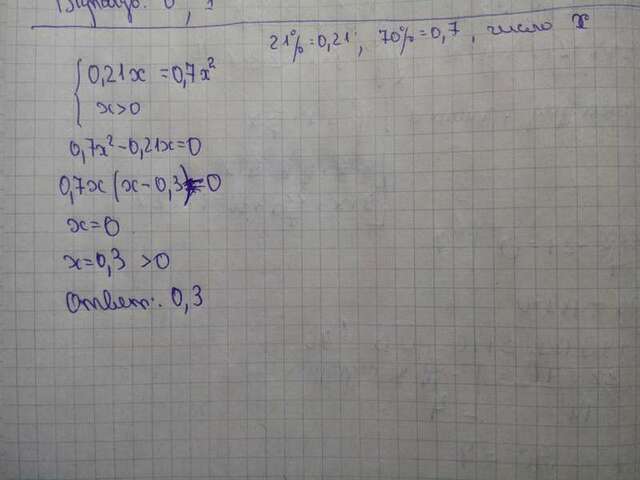 21% = 0,21; 70% = 0,7, число x
0,21x = 0,7x²
x>0
0,7x² - 0,21x = 0
0,7x (x - 0,3) = 0
x = 0
x = 0,3 >0
Ответ: 0,3